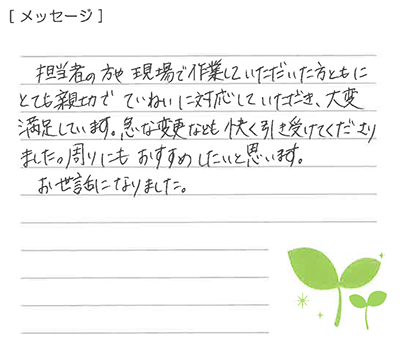 [ メッセージ ]
担当者の方や現場で作業していただいた方ともに
とても親切でていねいに対応していただき、大変
満足しています。急な変更なども快く引き受けてくださり
ました。周りにもおすすめしたいと思います。
お世話になりました。